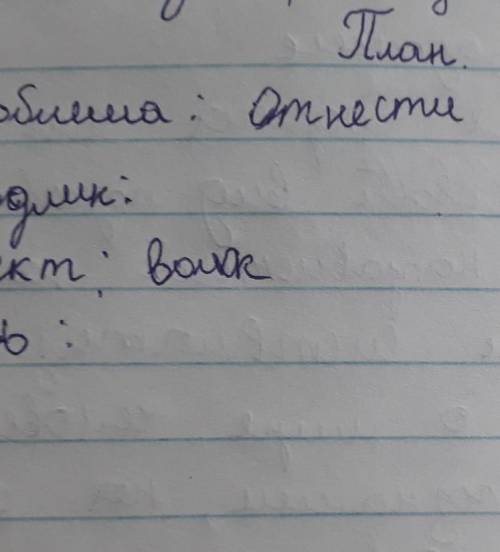 План.
облема: Отнести
одлик:
ект: волк
ь: